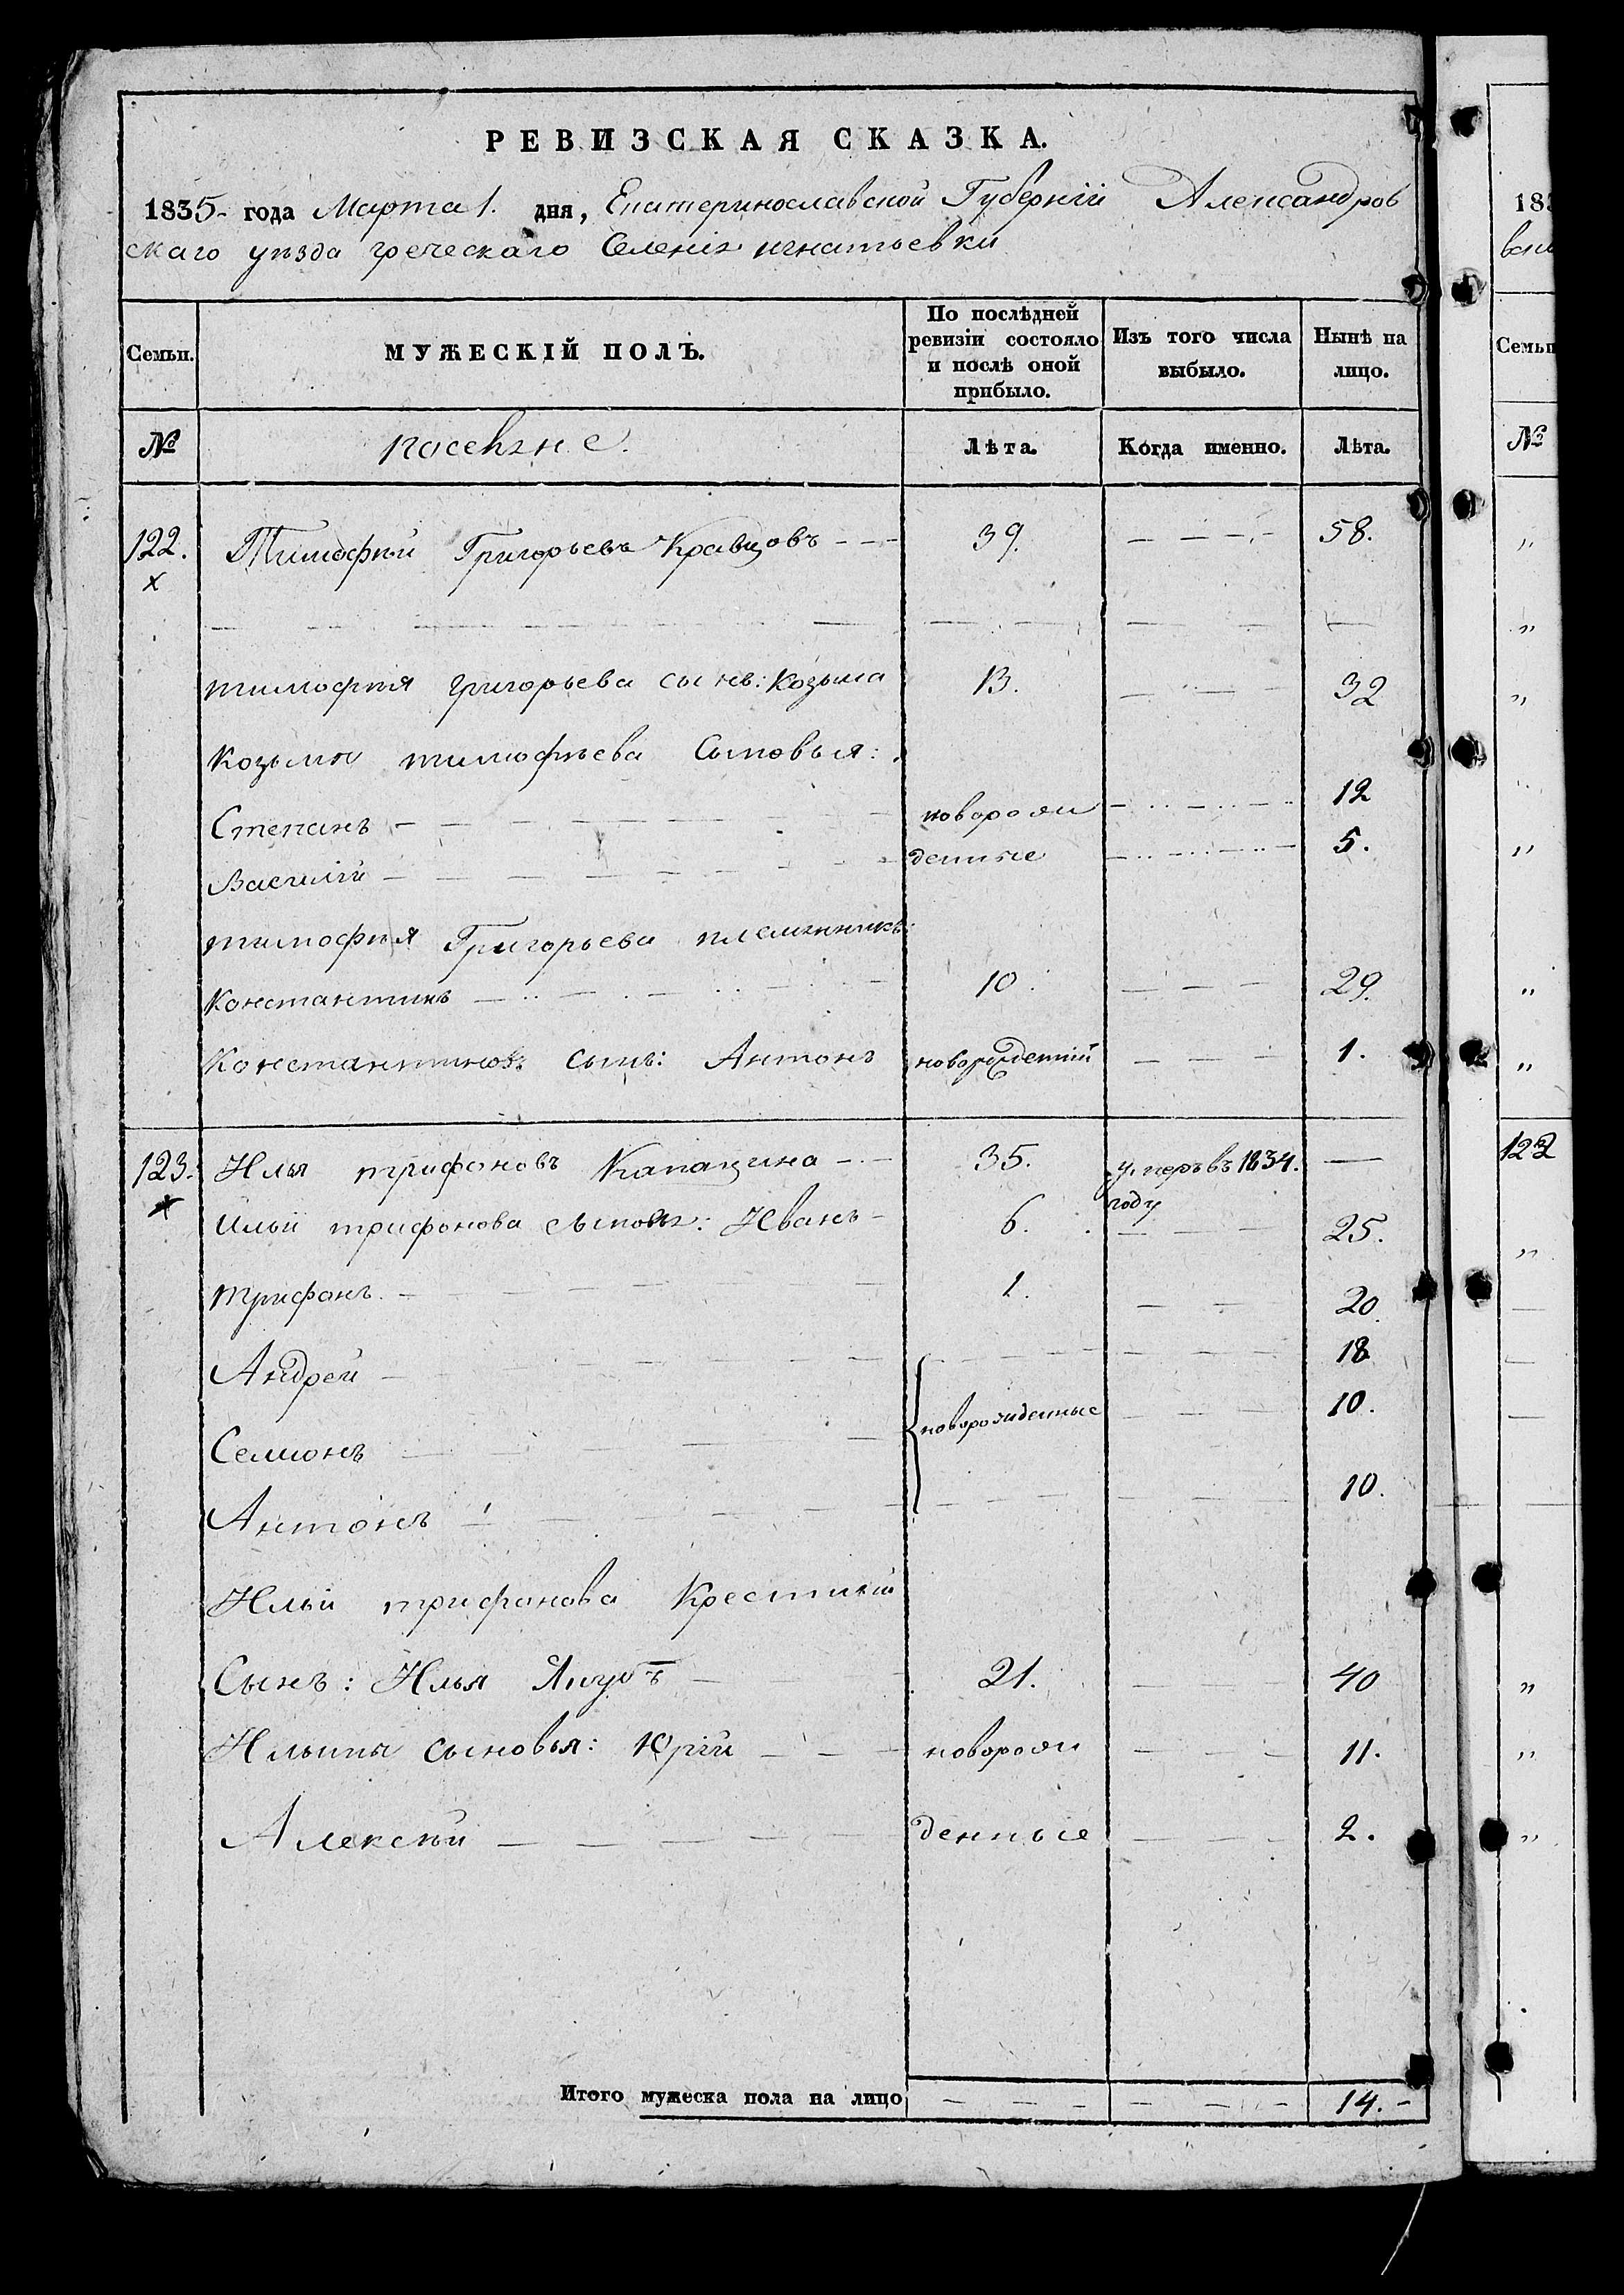 РЕВИЗСКАЯ СКАЗКА.
1835- года Марта 1. дня, Екатеринославской Губерніи Александров
скаго уѣзда греческаго Селенія игнатьевки
Семьи. МУЖЕСКІЙ ПОЛЪ. По послѣдней ревизіи состояло и послѣ оной прибыло. Изъ того числа выбыло. Нынѣ на лицо.
№ Лѣта. Когда именно. Лѣта.
122. Тимофѣй Григорьевъ Кравцовъ - - - 39. 58.
х
тимофѣя григорьева сынъ: Козьма 13. 32
Козьмы тимофѣева Сыновья:
Степанъ новорож 12
Василій денные 5.
тимофѣя Григорьева племянникъ:
Константинъ 10. 29.
Константиновъ сынъ: Антонъ новорожденній 1.
123. Илья трифоновъ Капацина 35. умеръ въ 1834. —
х году
Ильи трифонова сыновья: Иванъ - 6. 25.
трифонъ. 1. 20.
Андрей 18
Семионъ новорожденные 10.
Антонъ 10.
Ильи трифонова Крестній
Сынъ: Илья Якубъ 21. 40
Ильины сыновья: Юрій новорож 11.
Алексѣй денные 2.
Итого мужеска пола на лицо 14. -
183
Семьи
№
122